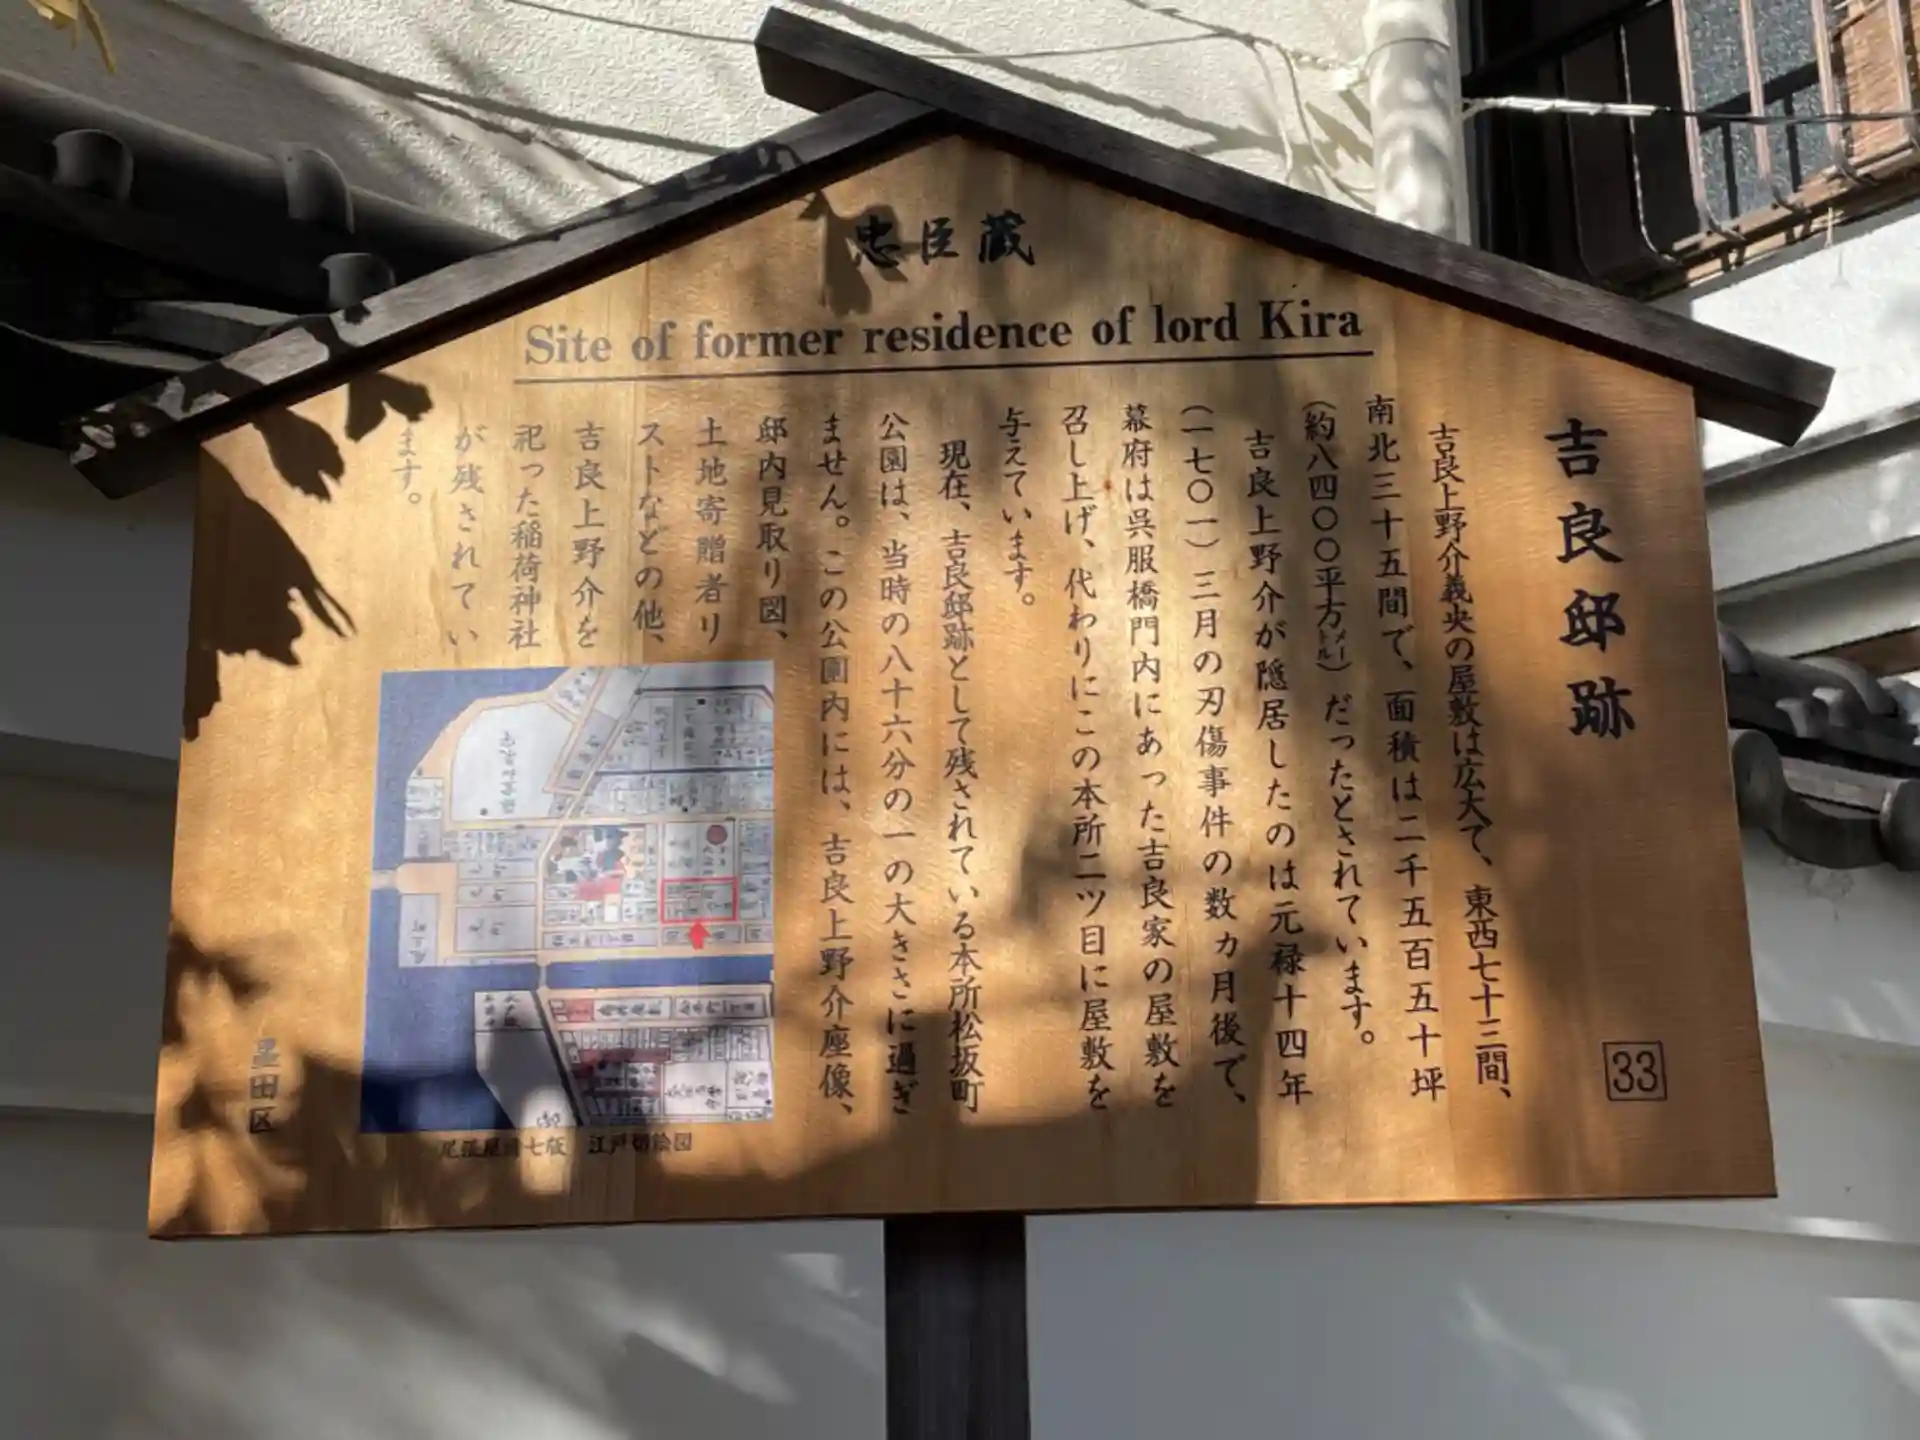 忠臣蔵
Site of former residence of lord Kira
吉良邸跡
吉良上野介義央の屋敷は広大で、東西七十三間、
南北三十五間で、面積は二千五百五十坪
(約八四〇〇平方メートル)だったとされています。
吉良上野介が隠居したのは元禄十四年
(一七〇一)三月の刃傷事件の数カ月後で、
幕府は呉服橋門内にあった吉良家の屋敷を
召し上げ、代わりにこの本所二ツ目に屋敷を
与えています。
現在、吉良邸跡として残されている本所松坂町
公園は、当時の八十六分の一の大きさに過ぎ
ません。この公園内には、吉良上野介座像、
邸内見取り図、
土地寄贈者リ
ストなどの他、
吉良上野介を
祀った稲荷神社
が残されてい
ます。
33
尾張屋清七版 江戸切絵図
墨田区